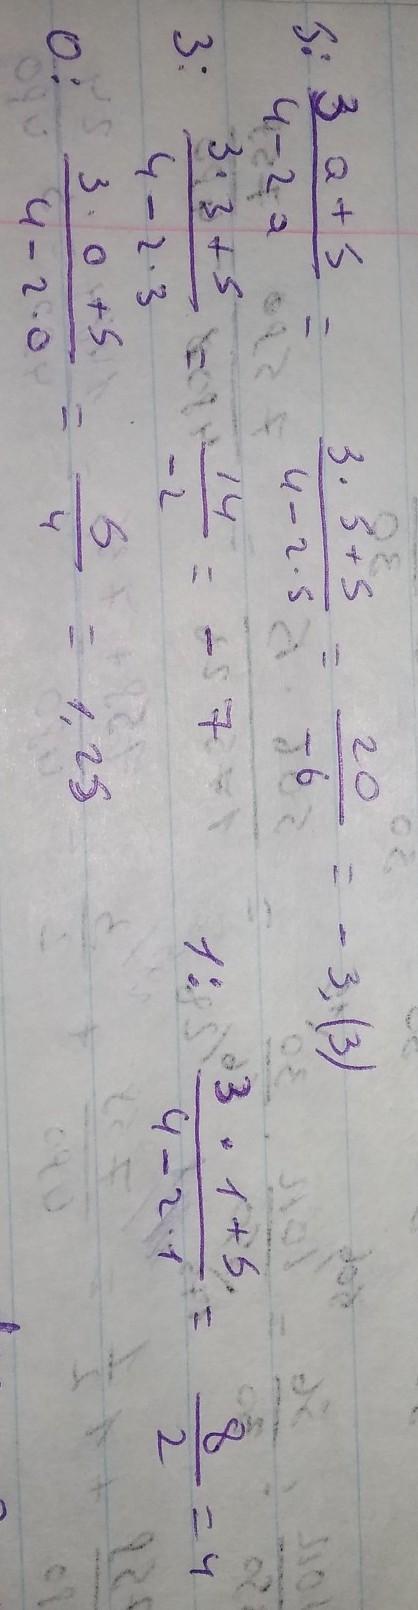 5: 3a+5 / 4-2a = 3·5+5 / 4-2·5 = 20 / -6 = -3,(3)
3: 3·3+5 / 4-2·3 = 14 / -2 = -7 1: 3·1+5 / 4-2·1 = 8 / 2 = 4
0: 3·0+5 / 4-2·0 = 5 / 4 = 1,25